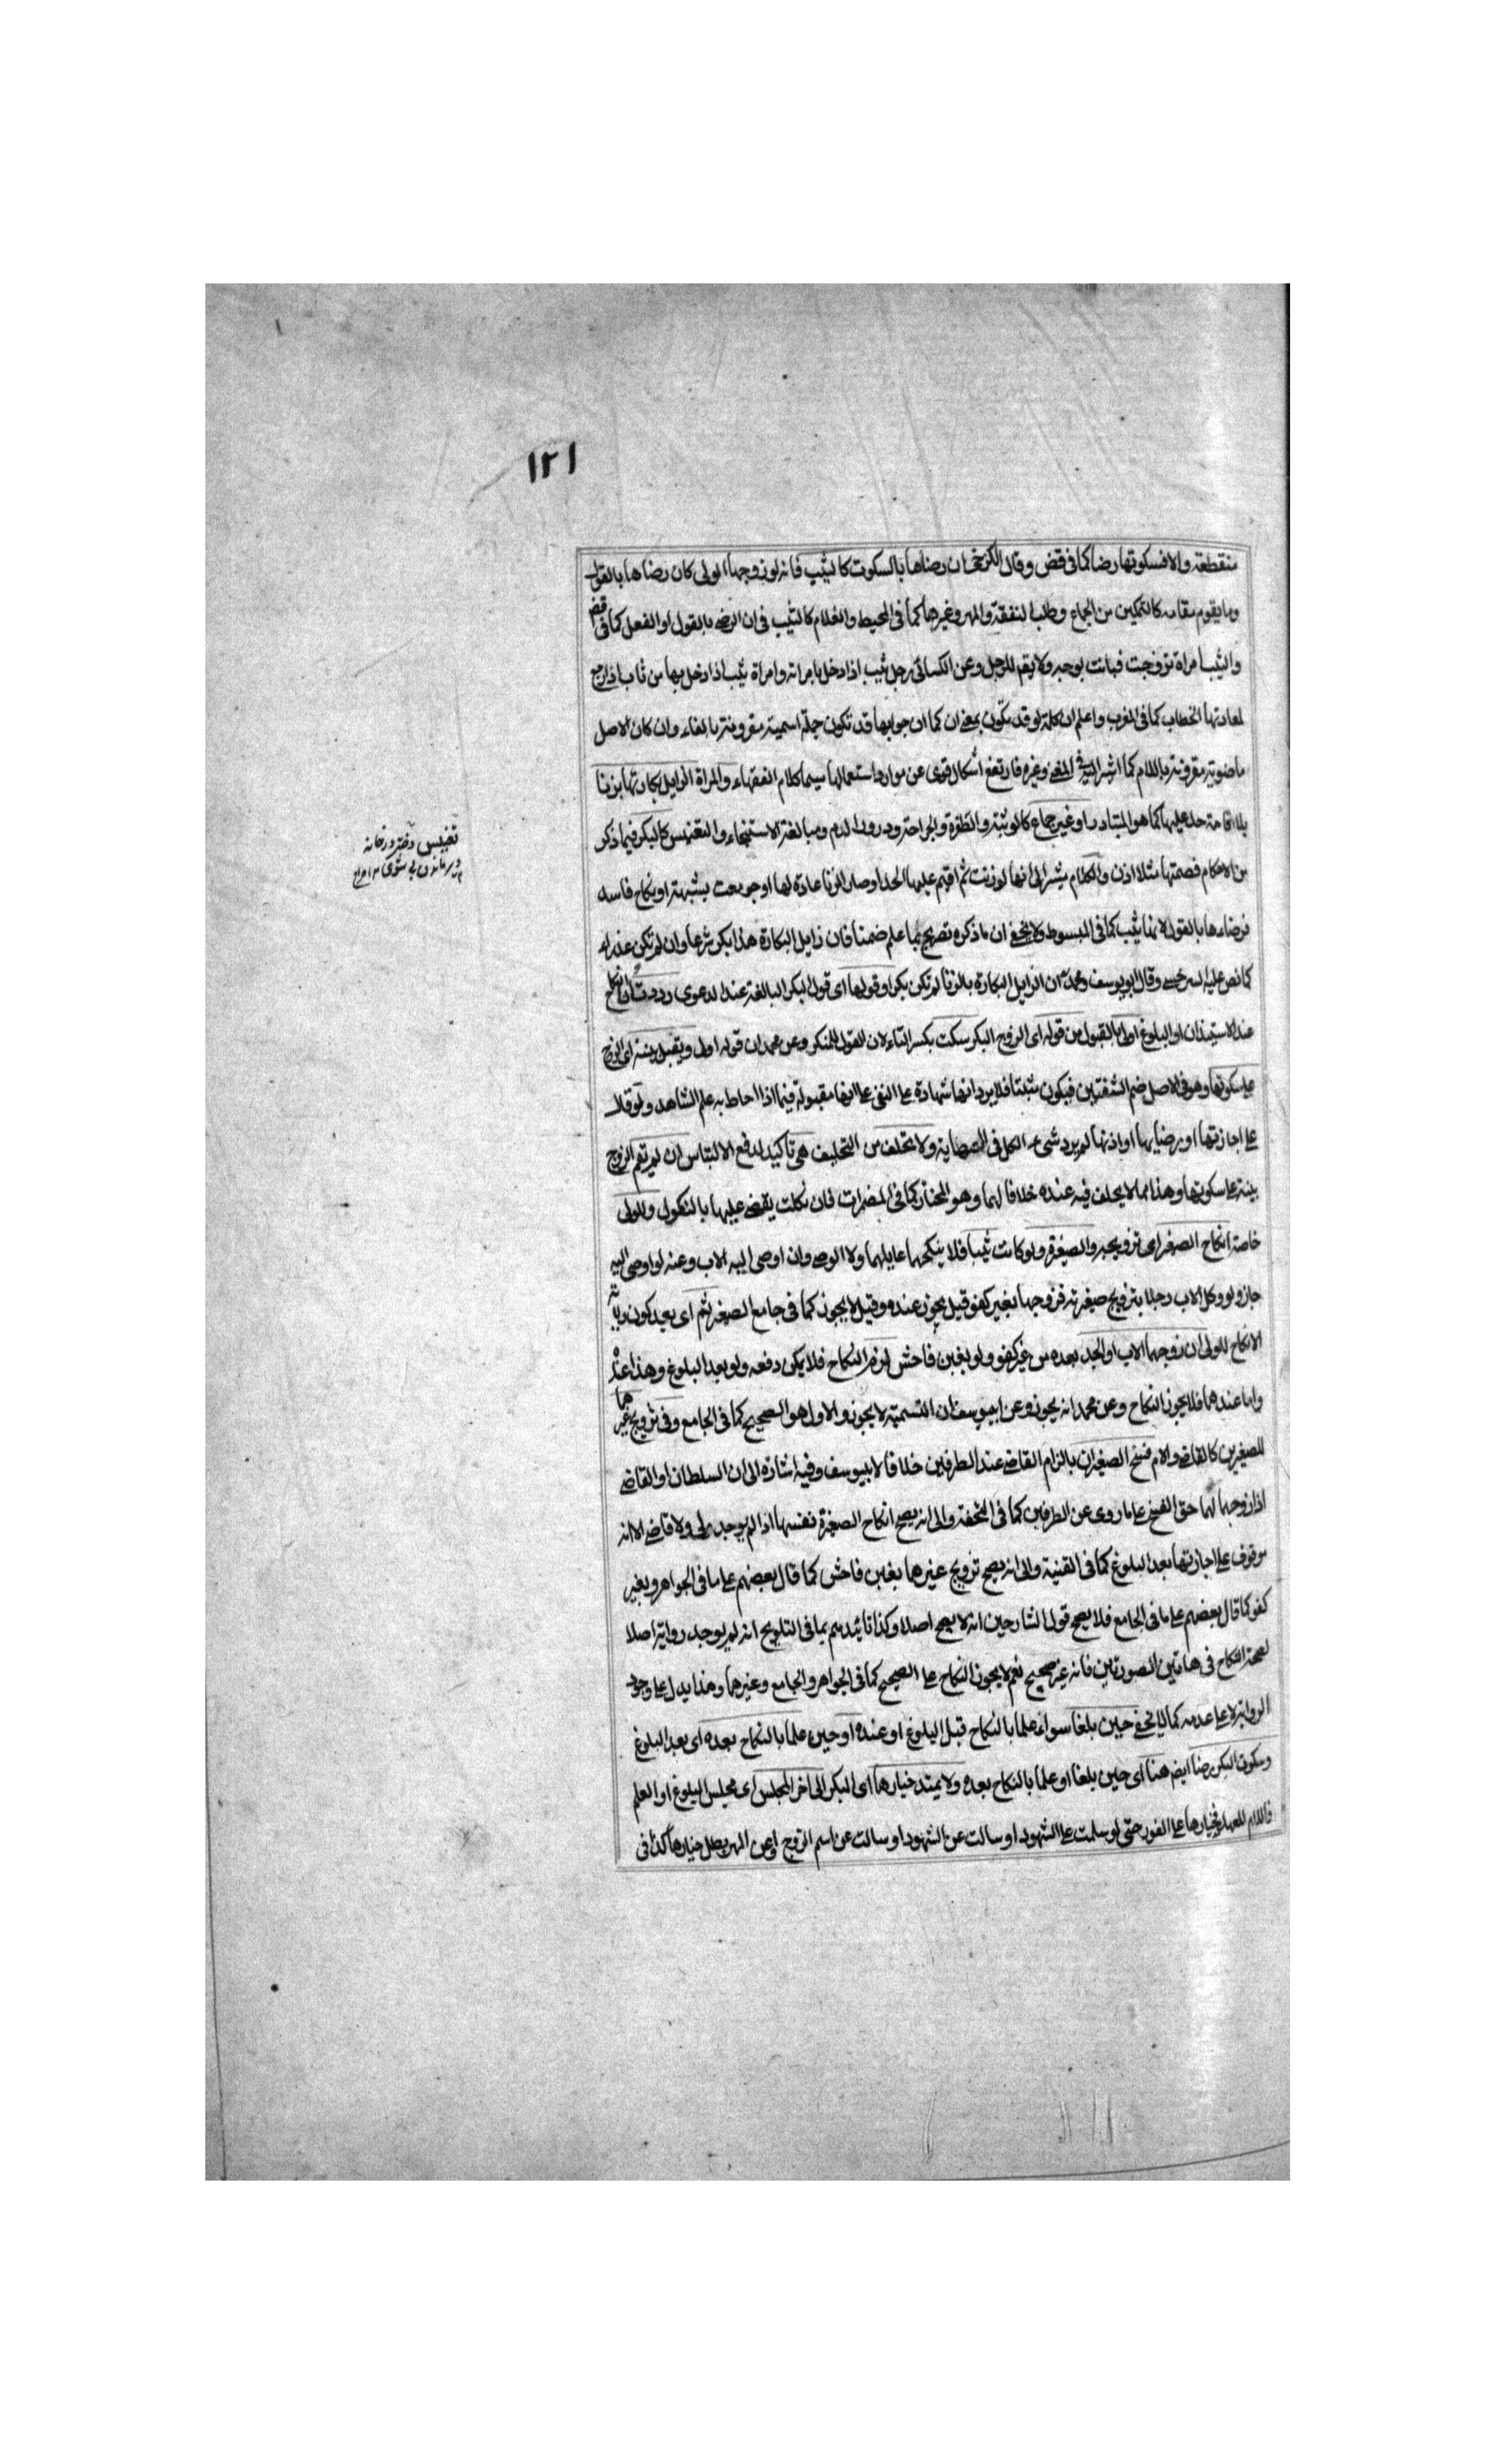 ١٢١
منقطعة والا فسكوتها رضا كما فى قض وقال الكرخى ان رضاها بالسكوت كالثيب فانه لو زوجها الولى كان رضاها بالقول
وما يقوم مقامه كالتمكين من الجماع وطلب النفقة والمهر وغيرها كما فى المحيط والغلام كالثيب فى ان الرضى بالقول او الفعل كما فى قض
والثيب امراة تزوجت فبانت بوجه ولا يقم للرجل وعن الكسائى رجل ثيب اذا دخل بامراته وامراة ثيب اذا دخل بها من ثاب اذا رجع
لمعاودتها الخطاب كما فى المغرب واعلم ان كلمة لو قد تكون بمعنى ان كما ان جوابها قد تكون جملة اسمية مقرونة بالفاء وان كان الاصل
ماضوية مقرونة باللام كما اشير اليه فى المغنى وغيره فارتفع اشكال قوى عن موارد استعمالها سيما كلام الفقهاء والمراة الزايل بكارتها بزنا
بلا اقامة حد عليها كما هو المتبادر او غير جماع كالوثبة والطفرة والجراحة ودرور الدم ومبالغة الاستنجاء والتعنيس كالبكر فيما ذكر
من الاحكام فصمتها مثلا اذن والكلام مشير الى انها لو زنت ثم اقيم عليها الحد او صار الزنا عادة لها او جومعت بشبهة او نكاح فاسد
فرضاءها بالقول لانها ثيب كما فى المبسوط ولا يخفى ان ما ذكره تصريح بما علم ضمنا فان زايل البكارة هذا بكر شرعا وان لم تكن عذراء
كما نص عليه السرخسى وقال ابو يوسف ومحمد ان الزايل البكارة بالزنا لم تكن بكرا وقولها اى قول البكر البالغة عند الدعوى رددت النكاح
عند الاستيذان او البلوغ اولى بالقبول من قوله اى الزوج البكر سكت بكسر التاء لان القول للمنكر وعن محمد ان قوله اولى ويقبل بينته اى الزوج
على سكوتها وهو فى الاصل ضم الشفتين فيكون مثبتا فلا يرد انها شهادة على النفى على انها مقبولة فيما اذا احاط به علم الشاهد ولو قال
على اجازتها او رضايها او اذنها لم يرد شئ الكل فى النهاية ولا تحلف من التحليف هى تاكيد لدفع الالتباس ان لم تقم الزوج
بينة على سكوتها وهذا مما لا يحلف فيه عنده خلافا لهما وهو المختار كما فى المضمرات فان نكلت يقضى عليها بالنكول وللولى
خاصة انكاح الصغير اى تزويجه والصغيرة ولو كانت ثيبا فلا ينكحهما عايلهما ولا الوصى وان اوصى اليه الاب وعنه لو اوصى اليه
جاز ولو وكل الاب رجلا بتزويج صغيرته فزوجها بغير كفو قيل يجوز عنده وقيل لا يجوز كما فى جامع الصغير ثم اى بعد كون ولاية
الانكاح للولى ان زوجهما الاب او الجد بعده من غير كفو ولو بغبن فاحش لزم النكاح فلا يمكن دفعه ولو بعد البلوغ وهذا عنده
واما عندهما فلا يجوز النكاح وعن محمد انه يجوز وعن ابى يوسف ان التسمية لا يجوز والاول هو الصحيح كما فى الجامع وفى تزويج غيرهما
للصغيرين كالقاضى والام فسخ الصغيران بالزام القاضى عند الطرفين خلافا لابى يوسف وفيه اشارة الى ان السلطان او القاضى
اذا زوجهما لهما حق الفسخ على ما روى عن الطرفين كما فى التحفة والى انه يصح انكاح الصغيرة نفسها اذا لم يوجد ولى ولا قاضى الا انه
موقوف على اجازتها بعد البلوغ كما فى القنية والى انه يصح تزويج غيرهما بغبن فاحش كما قال بعضهم على ما فى الجواهر وبغير
كفو كما قال بعضهم على ما فى الجامع فلا يصح قول الشارحين انه لا يصح اصلا وكذا تائيدهم بما فى التلويح انه لم يوجد رواية اصلا
لصحة النكاح فى هاتين الصورتين فانه غير صحيح نعم لا يجوز النكاح على الصحيح كما فى الجواهر والجامع وغيرهما وهذا يدل على وجود
الرواية لا على عدمه كما لا يخفى حين بلغا سواء علما بالنكاح قبل البلوغ او عنده او حين علما بالنكاح بعده اى بعد البلوغ
وسكوت البكر رضا ايضم هنا اى حين بلغا او علما بالنكاح بعده ولا يمتد خيارها اى البكر الى اخر المجلس اى مجلس البلوغ او العلم
فاللام للعهد فخيارها على الفور حتى لو سلمت على الشهود او سالت عن الشهود او سالت عن اسم الزوج او عن المهر بطل خيارها كذا فى
تعنيس دختر در خانه